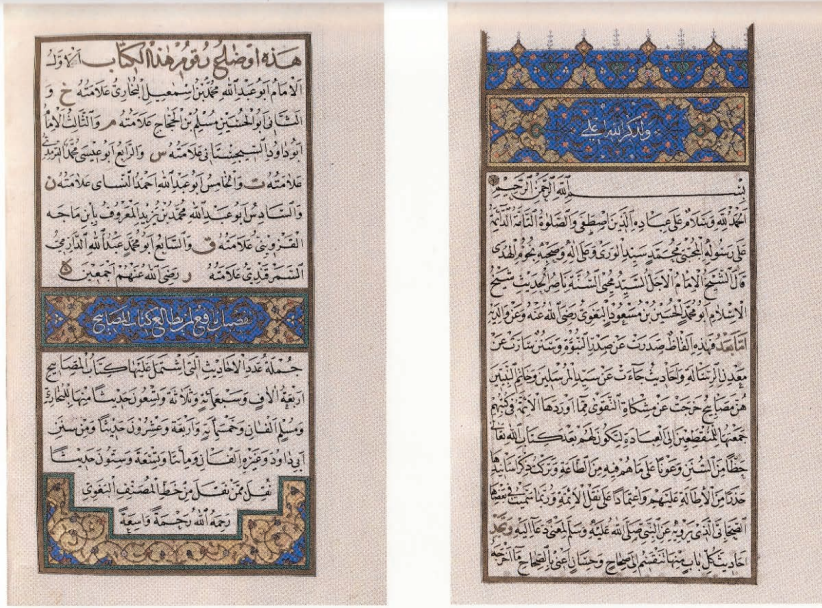 ولذكر الله اعلى
بسم الله الرحمن الرحيم
الحمد لله وسلام على عباده الذين اصطفى والصلوة التامة الدائمة
على رسوله المجتبى محمد سيد الورى وعلى آله وصحبه نجوم الهدى
قال الشيخ الامام الاجل السيد محيي السنة ناصر الحديث شيخ
الاسلام ابو محمد الحسين بن مسعود البغوي رضي الله عنه وعن والديه
اما بعد فهذه الفاظ صدرت عن صدر النبوة وسنن سارت عن
معدن الرسالة واحاديث جاءت عن سيد المرسلين وخاتم النبيين
هن مصابيح خرجت عن مشكاة التقوى مما اوردها الائمة في كتبهم
جمعتها للمنقطعين الى العبادة لتكون لهم بعد كتاب الله تعالى
حظا من السنن وعونا على ما هم فيه من الطاعة وتركت ذكر اسانيدها
حذرا من الاطالة عليهم واعتمادا على نقل الائمة وربما سميت في بعضها
الصحابي الذي يرويه عن النبي صلى الله عليه وسلم لمعنى دعا اليه وتجد
احاديث كل باب منها تنقسم الى صحاح وحسان اعني بالصحاح ما اخرجه
هذه اوضاح رقوم هذا الكتاب الاول
الامام ابو عبد الله محمد بن اسمعيل البخاري علامته خ و
الثاني ابو الحسين مسلم بن الحجاج علامته م والثالث الامام
ابو داود السجستاني علامته س والرابع ابو عيسى محمد الترمذي
علامته ت والخامس ابو عبد الله احمد النساي علامته ن
والسادس ابو عبد الله محمد بن يزيد المعروف بابن ماجه
القزويني علامته ق والسابع ابو محمد عبد الله الدارمي
السمرقندي علامته ر رضي الله عنهم اجمعين
كتاب المصابيح
جملة عدد الاحاديث التي اشتمل عليها كتاب المصابيح
اربعة الاف وسبعمائة وثلاثة وتسعون حديثا منها للبخاري
ومسلم الفان وخمسمائة واربعة وعشرون حديثا ومن سنن
ابي داود وغيره الفان ومائتا وتسعة وستون حديثا
نقل ممن نقل من خط المصنف البغوي
رحمه الله رحمة واسعة